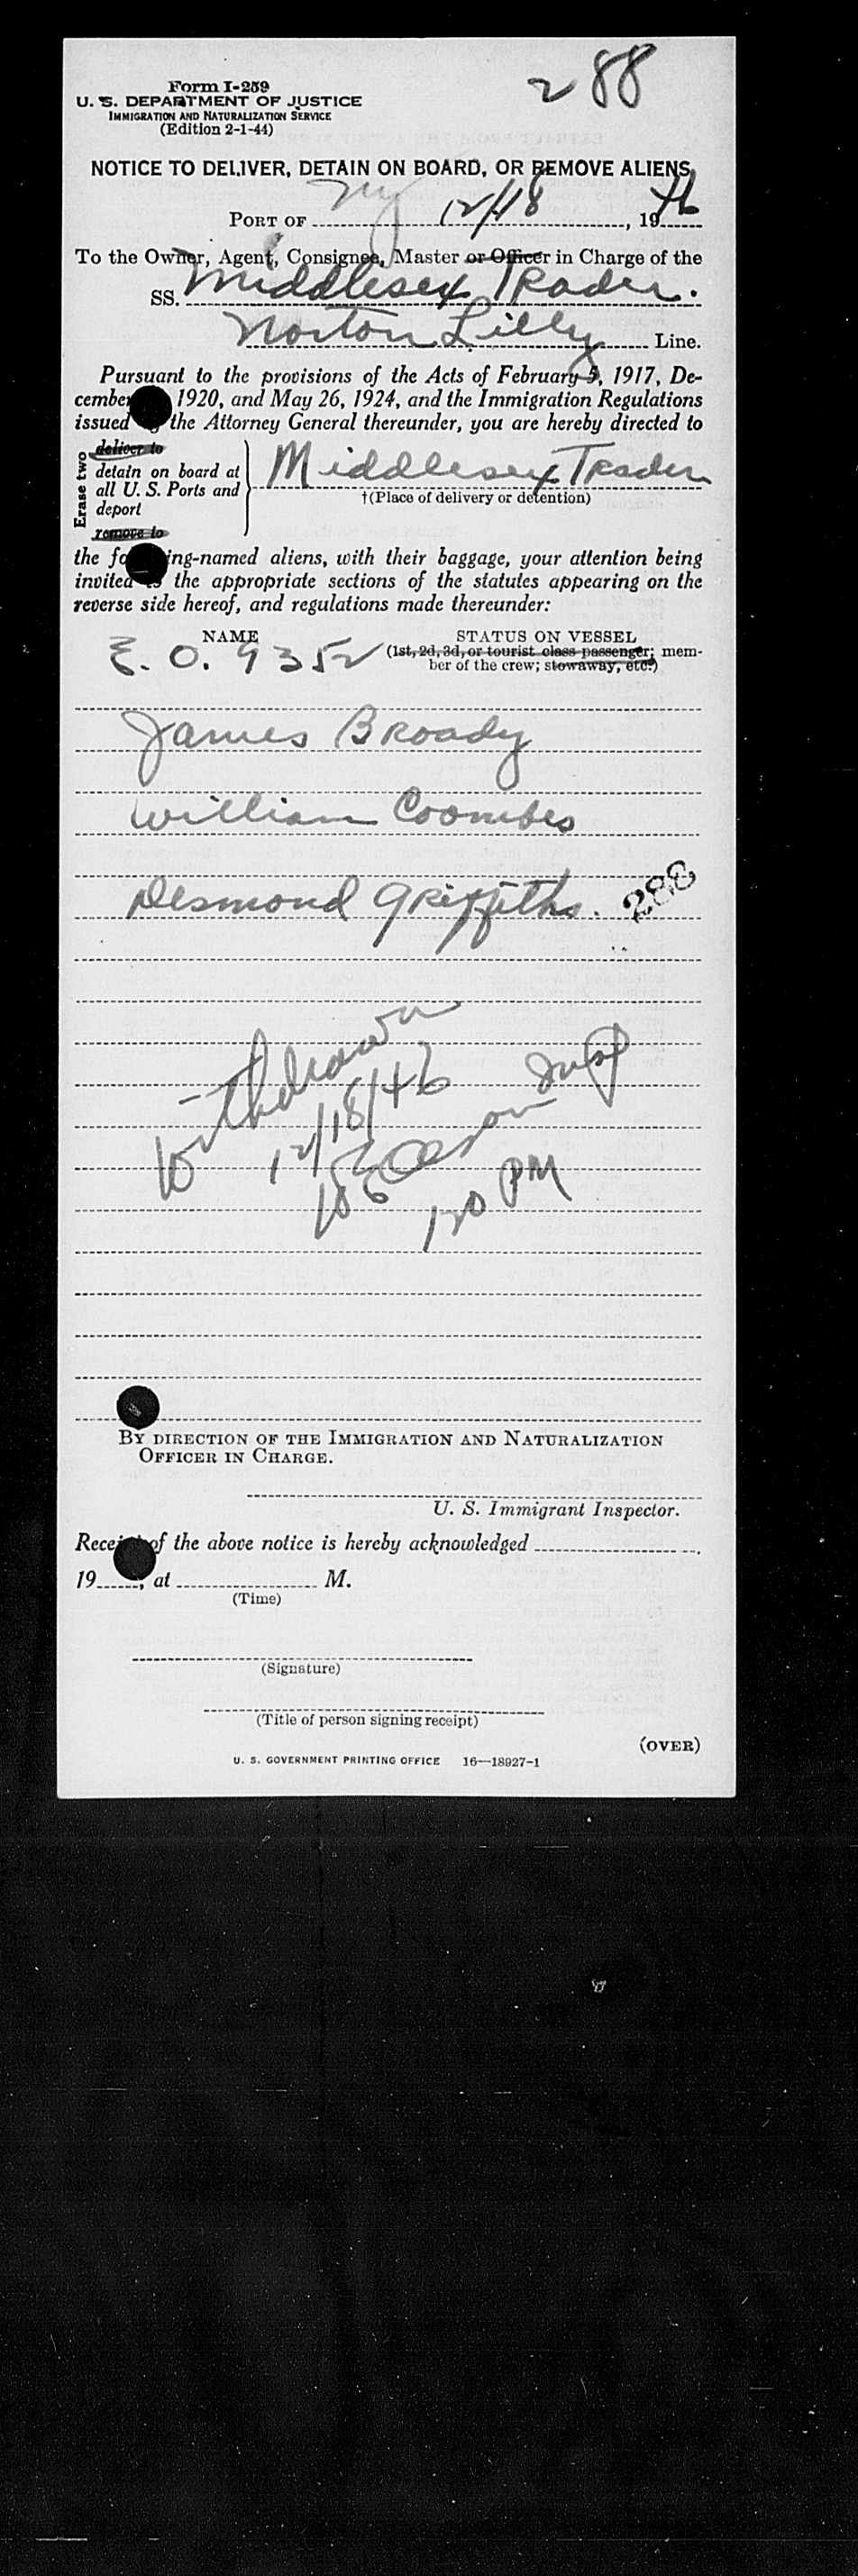 288
Form I-259
U. S. DEPARTMENT OF JUSTICE
IMMIGRATION AND NATURALIZATION SERVICE
(Edition 2-1-44)
NOTICE TO DELIVER, DETAIN ON BOARD, OR REMOVE ALIENS
PORT OF NY 12/18, 1946
To the Owner, Agent, Consignee, Master or Officer in Charge of the
SS. Middlesex Trader.
Norton Lilly Line.
Pursuant to the provisions of the Acts of February 5, 1917, De-
cember 1920, and May 26, 1924, and the Immigration Regulations
issued the Attorney General thereunder, you are hereby directed to
Erase two
deliver to
detain on board at
all U. S. Ports and
deport
remove to
Middlesex Trader
†(Place of delivery or detention)
the following-named aliens, with their baggage, your attention being
invited the appropriate sections of the statutes appearing on the
reverse side hereof, and regulations made thereunder:
NAME STATUS ON VESSEL
E. O. 9352 (1st, 2d, 3d, or tourist class passenger; mem-
ber of the crew; stowaway, etc.)
James Broady
William Coombes
Desmond Griffiths. 288
Withdrawn
12/18/46
Olson Insp
120 PM
BY DIRECTION OF THE IMMIGRATION AND NATURALIZATION
OFFICER IN CHARGE.
U. S. Immigrant Inspector.
Receipt of the above notice is hereby acknowledged
19 , at M.
(Time)
(Signature)
(Title of person signing receipt)
(OVER)
U. S. GOVERNMENT PRINTING OFFICE 16—18927-1